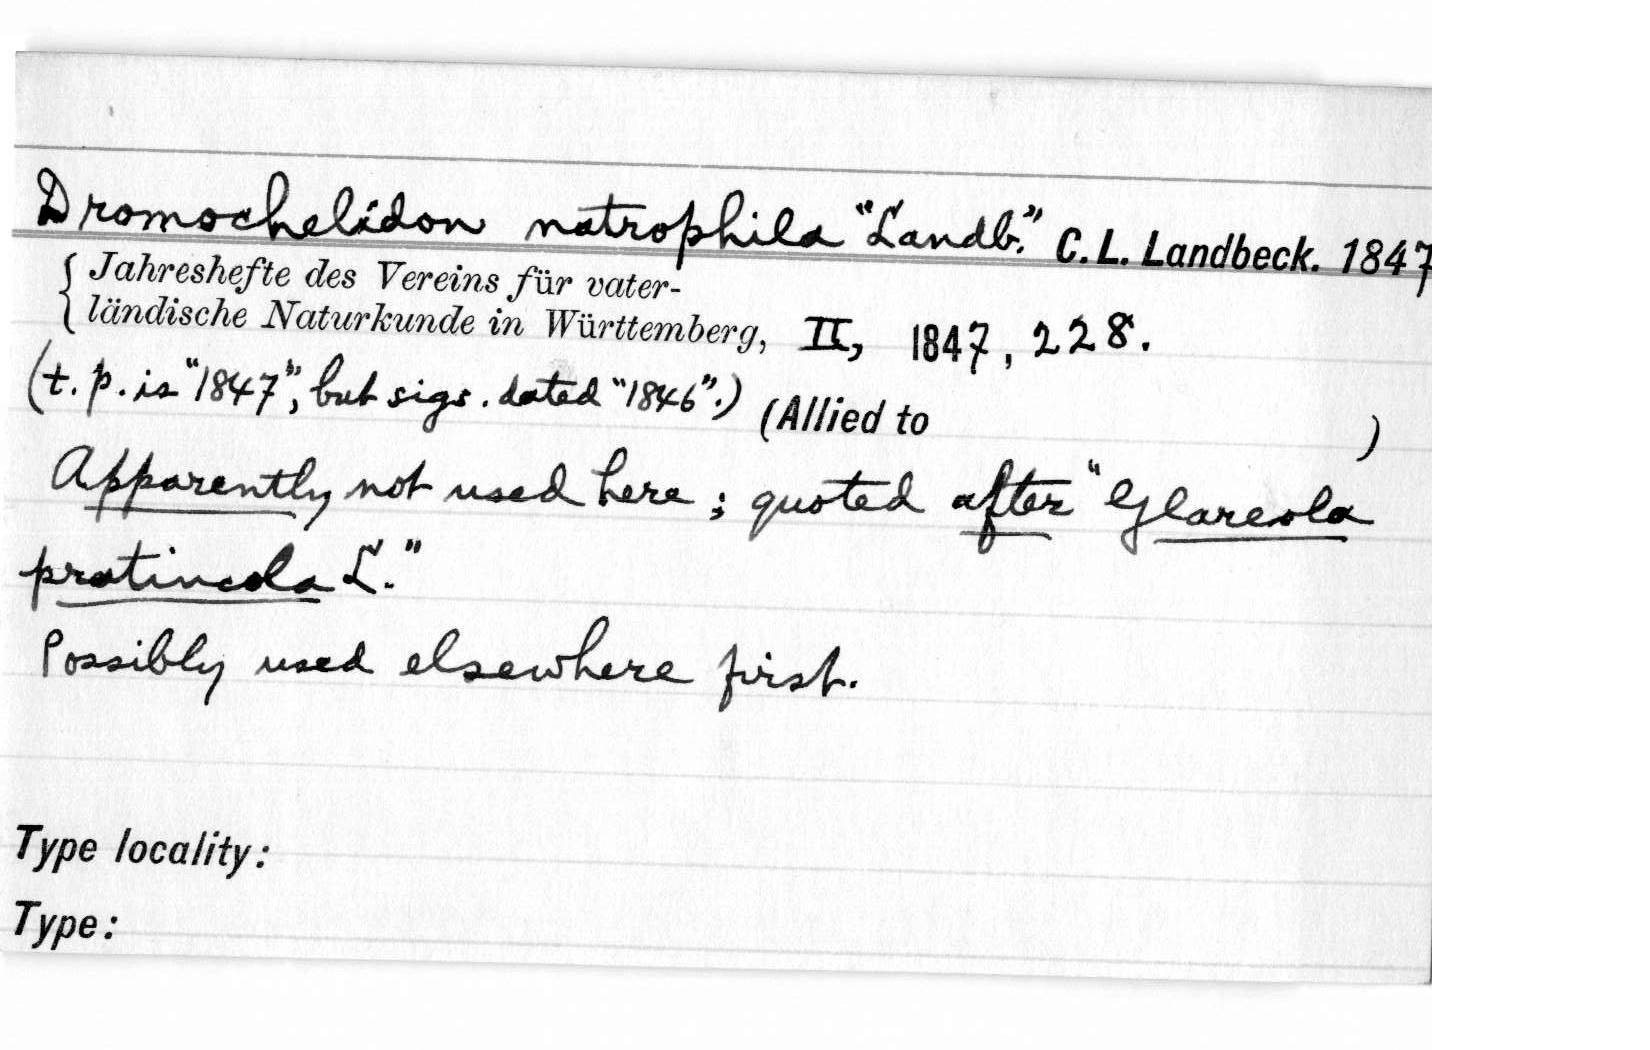 Dromochelidon natrophila "Landb." C. L. Landbeck. 1847
Jahreshefte des Vereins für vater-
ländische Naturkunde in Württemberg, II, 1847, 228.
(t. p. is "1847", but sigs. dated "1846".) (Allied to )
Apparently not used here; quoted after "Glareola
pratincola L."
Possibly used elsewhere first.
Type locality:
Type: